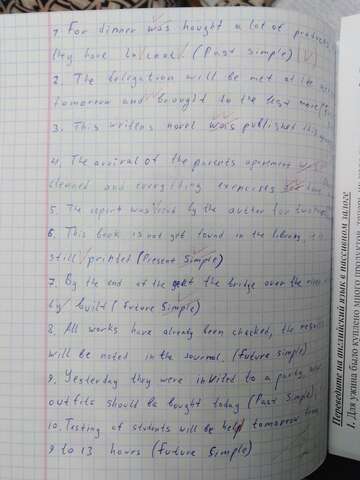 1. For dinner was bought a lot of products
they have to (Past Simple) (V)
2. The delegation will be met at the
tomorrow and brought to the best
3. This writers novel was published this
4. The arrival of the parents apartment was
cleaned and everything exercises
5. The report was by the author for two
6. This book is not yet found in the library,
still printed (Present Simple)
7. By the end of the the bridge over the river
by built (Future Simple)
8. All works have already been checked, the
will be noted in the journal. (Future simple)
9. Yesterday they were invited to a party,
outfits should be bought today (Past Simple)
10. Testing of students will be help tomorrow from
9 to 13 hours (Future Simple)
Переведите на английский язык в пассивном залоге
1. Для ужина было куплено много продуктов, теперь их